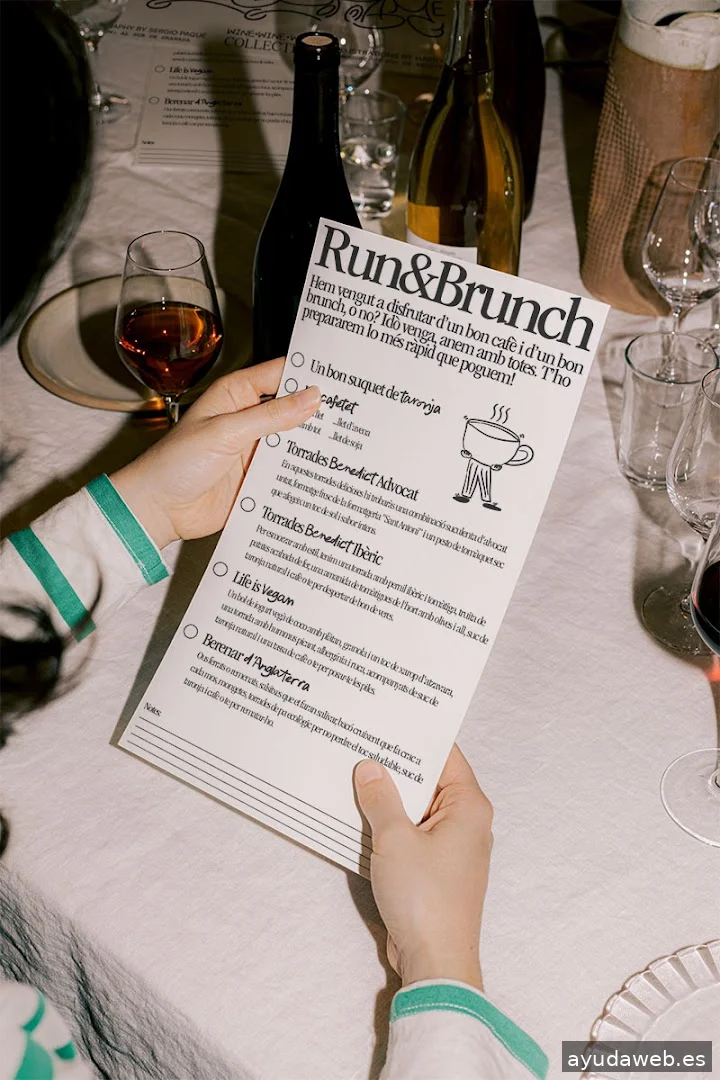 WINE•WINE•
COLLECT
Life is Vegan
Berenar d'Anglaterra
Notes:
Run&Brunch
Hem vengut a disfrutar d'un bon cafè i d'un bon
brunch, o no? Idò venga, anem amb totes. T'ho
prepararem lo més ràpid que poguem!
Un bon suquet de taronja
cafetet
llet d'avena
llet de soja
Torrades Benedict Advocat
En aquestes torrades delicioses hi trobaràs una combinació suculenta d'advocat
untat, formatge fresc de la formatgeria "Sant Antoni" i un pesto de tomàquet sec
que afegeix un toc de sol i sabor intens.
Torrades Benedict Ibèric
Per esmorzar amb estil, tenim una torrada amb pernil ibèric i tomàtiga, truita de
patates acabada de fer, una amanida de tomàtigues de l'hort amb olives i all, suc de
taronja natural i cafè o te per despertar de bon de veres.
Life is Vegan
Un bol de iogurt vegà de coco amb plàtan, granola i un toc de xarop d'atzavara,
una torrada amb hummus picant, albergínia i ruca, acompanyats de suc de
taronja natural i una tassa de cafè o te per posar-te les piles.
Berenar d'Anglaterra
Ous ferrats o remenats, salsitxes que et faran salivar, bacó cruixent que fa crac a
cada mos, mongetes, torrades de pa ecològic per no perdre el toc saludable, suc de
taronja i cafè o te per rematar-ho.
Notes:
ayudaweb.es